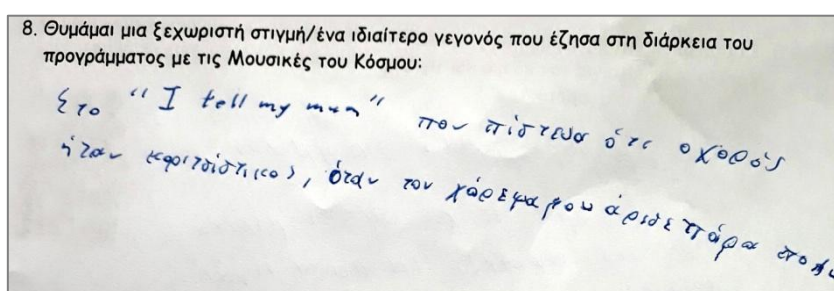 8. Θυμάμαι μια ξεχωριστή στιγμή/ένα ιδιαίτερο γεγονός που έζησα στη διάρκεια του
προγράμματος με τις Μουσικές του Κόσμου:
Στο "I tell my mum" που πίστευα ότι ο χορός
ήταν κοριτσίστικος, όταν τον χόρεψα μου άρεσε πάρα πολύ